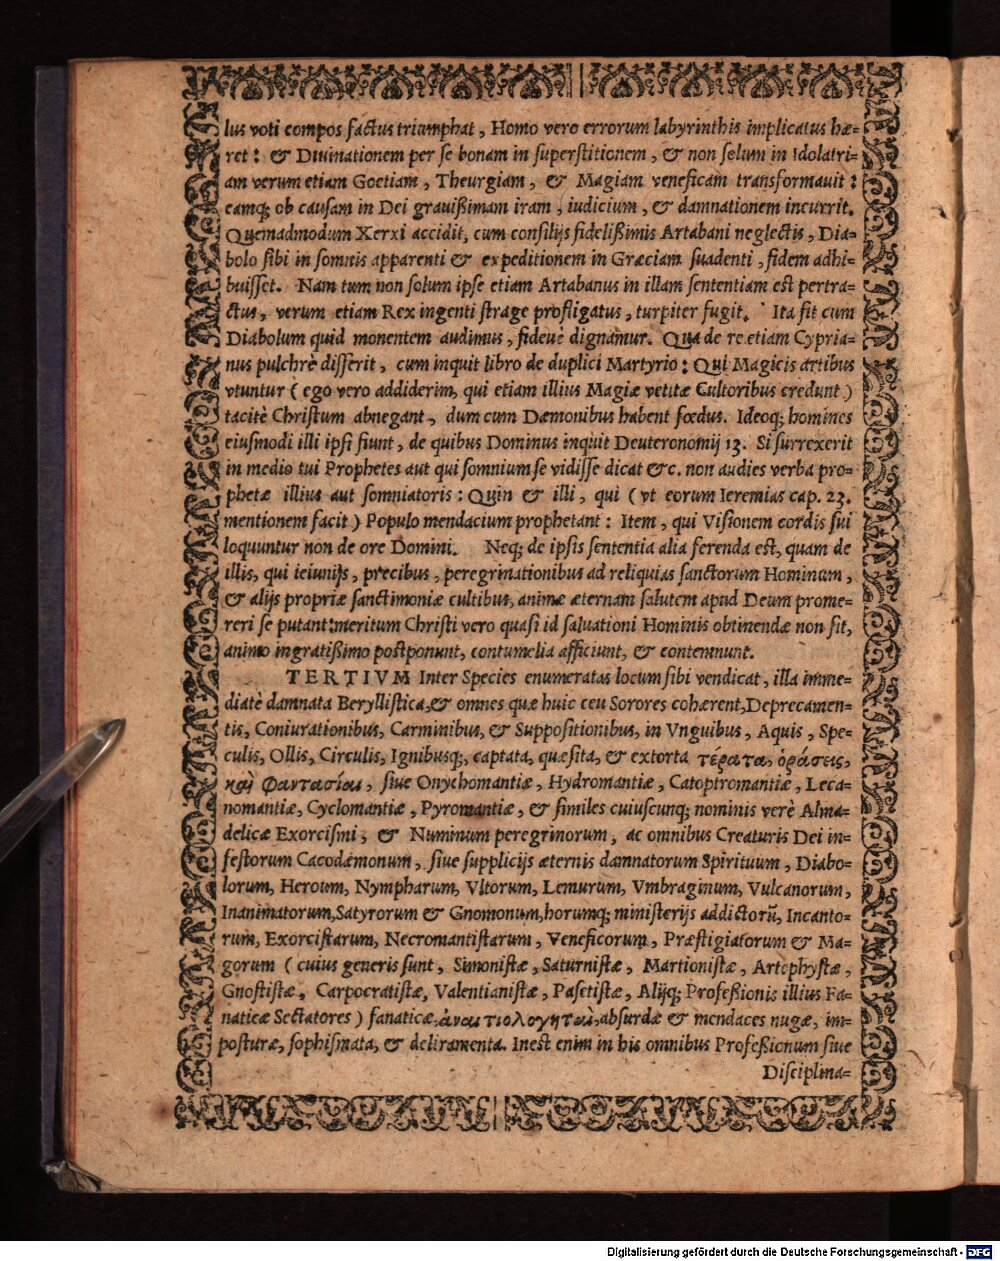 lus voti compos factus triumphat, Homo vero errorum labyrinthis implicatus hæ=
ret: & Divinationem per se bonam in superstitionem, & non solum in Idolatri=
am verum etiam Goetiam, Theurgiam, & Magiam veneficam transformauit:
eamq; ob causam in Dei grauißimam iram, iudicium, & damnationem incurrit.
Quemadmodum Xerxi accidit, cum consilijs fidelißimis Artabani neglectis, Dia=
bolo sibi in somnis apparenti & expeditionem in Græciam suadenti, fidem adhi=
buisset. Nam tum non solum ipse etiam Artabanus in illam sententiam est pertra=
ctus, verum etiam Rex ingenti strage profligatus, turpiter fugit. Ita fit cum
Diabolum quid monentem audimus, fideuè dignamur. Qua de re etiam Cypria=
nus pulchrè disserit, cum inquit libro de duplici Martyrio: Qui Magicis artibus
vtuntur ( ego vero addiderim, qui etiam illius Magiæ vetitæ Cultoribus credunt )
tacitè Christum abnegant, dum cum Dæmonibus habent fœdus. Ideoq; homines
eiusmodi illi ipsi fiunt, de quibus Dominus inquit Deuteronomij 13. Si surrexerit
in medio tui Prophetes aut qui somnium se vidisse dicat &c. non audies verba pro=
phetæ illius aut somniatoris: Quin & illi, qui ( vt eorum Ieremias cap. 23.
mentionem facit ) Populo mendacium prophetant: Item, qui Visionem cordis sui
loquuntur non de ore Domini. Neq; de ipsis sententia alia ferenda est, quam de
illis, qui ieiunijs, precibus, peregrinationibus ad reliquias sanctorum Hominum,
& alijs propriæ sanctimoniæ cultibus, animæ æternam salutem apud Deum prome=
reri se putant: meritum Christi vero quasi id saluationi Hominis obtinendæ non sit,
animo ingratißimo postponunt, contumelia afficiunt, & contemnunt.
TERTIVM Inter Species enumeratas locum sibi vendicat, illa imme=
diatè damnata Beryllistica, & omnes quæ huic ceu Sorores cohærent, Deprecamen=
tis, Coniurationibus, Carminibus, & Suppositionibus, in Vnguibus, Aquis, Spe=
culis, Ollis, Circulis, Ignibusq; captata, quæsita, & extorta τέρατα, ὁράσεις,
καὶ Φαντασίαι, siue Onychomantiæ, Hydromantiæ, Catoptromantiæ, Leca=
nomantiæ, Cyclomantiæ, Pyromantiæ, & similes cuiuscunq; nominis verè Alma=
delicæ Exorcismi, & Numinum peregrinorum, ac omnibus Creaturis Dei in=
festorum Cacodæmonum, siue supplicijs æternis damnatorum Spirituum, Diabo=
lorum, Heroum, Nympharum, Vltorum, Lemurum, Vmbraginum, Vulcanorum,
Inanimatorum, Satyrorum & Gnomonum, horumq; ministerijs addictorũ, Incanto=
rum, Exorcistarum, Necromantistarum, Veneficorum, Præstigiatorum & Ma=
gorum ( cuius generis sunt, Simonistæ, Saturnistæ, Martionistæ, Artephystæ,
Gnostistæ, Carpocratistæ, Valentianistæ, Pasetistæ, Alijq; Profeßionis illius Fa=
naticæ Sectatores ) fanaticæ, ἀναιτιολογηταὶ, absurdæ & mendaces nugæ, im=
posturæ, sophismata, & deliramenta. Inest enim in his omnibus Profeßionum siue
Disciplina=
Digitalisierung gefördert durch die Deutsche Forschungsgemeinschaft - DFG